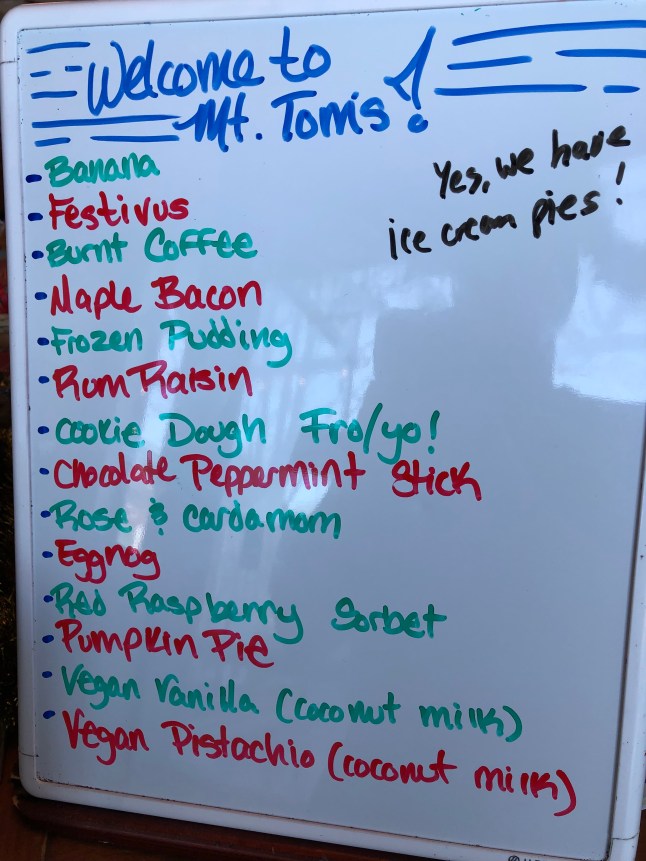 Welcome to
Mt. Tom's!
Yes, we have
ice cream pies!
• Banana
• Festivus
• Burnt Coffee
• Maple Bacon
• Frozen Pudding
• Rum Raisin
• Cookie Dough Fro/yo!
• Chocolate Peppermint Stick
• Rose & cardamom
• Eggnog
• Red Raspberry Sorbet
• Pumpkin Pie
• Vegan Vanilla (coconut milk)
• Vegan Pistachio (coconut milk)